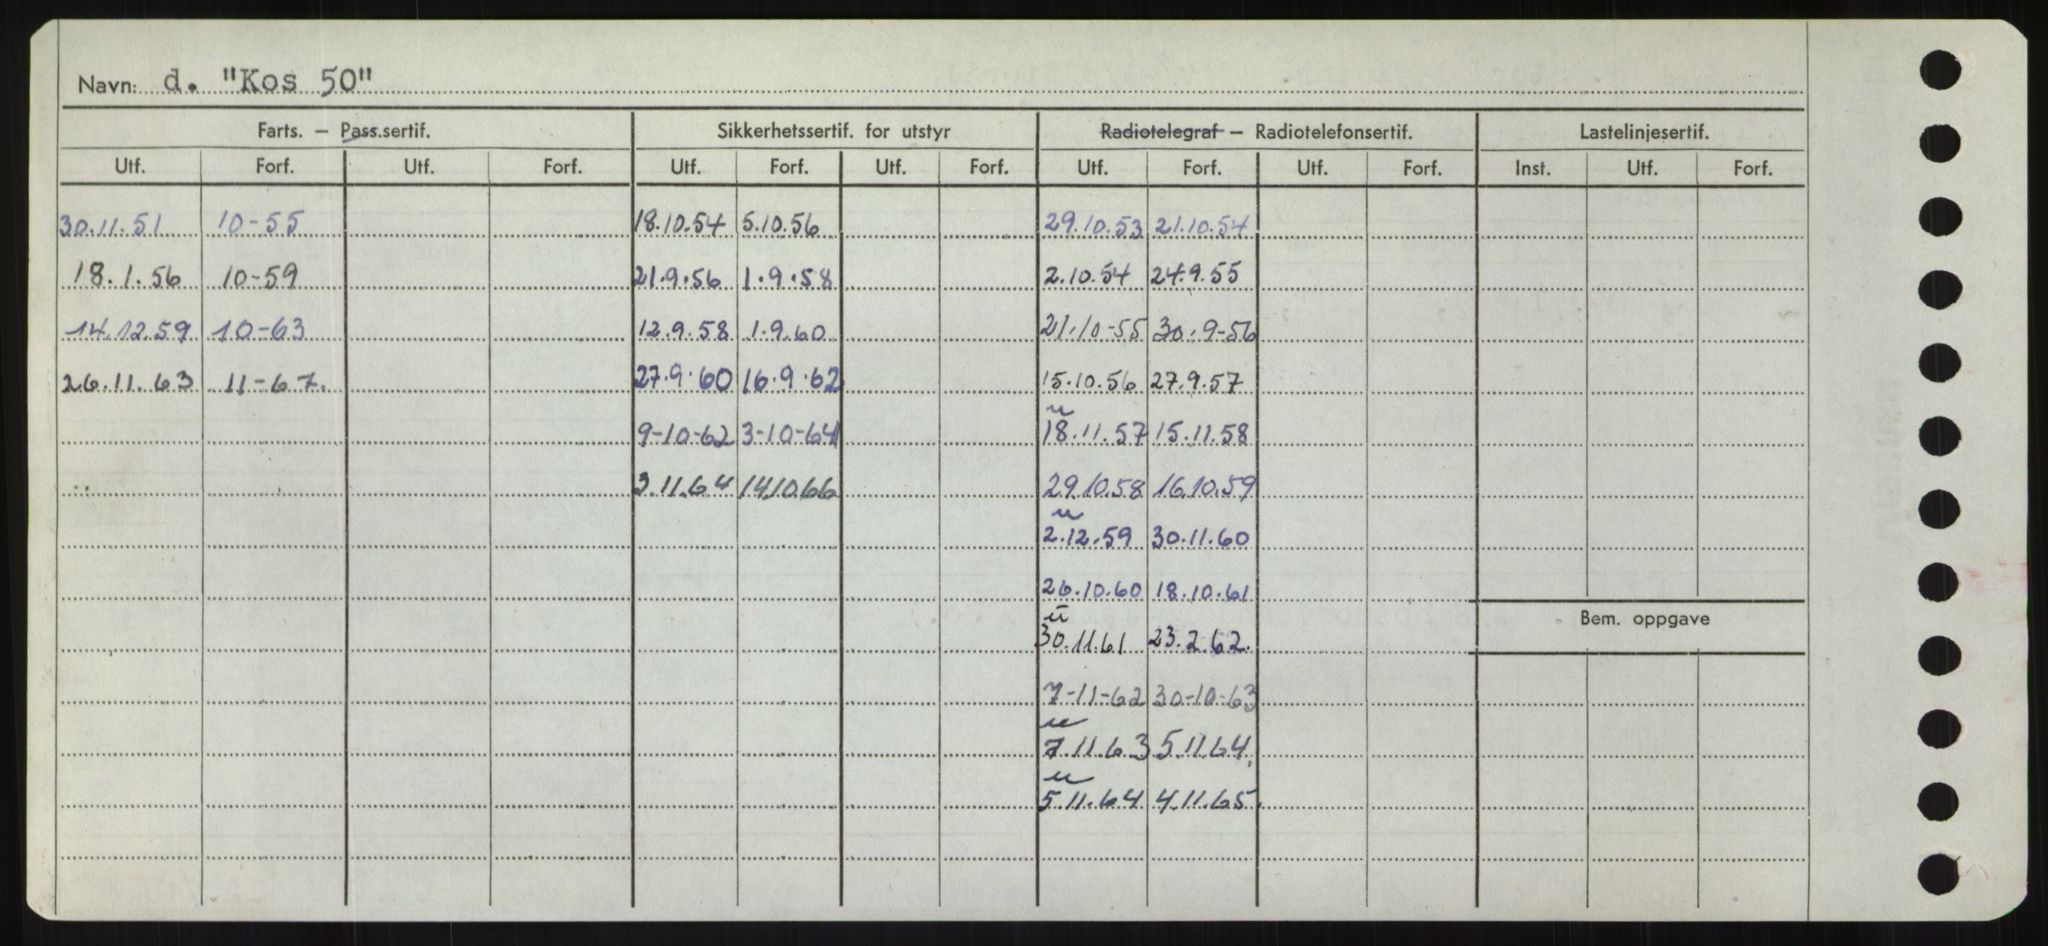 Navn: d. "Kos 50"
Farts. – Pass.sertif. Sikkerhetssertif. for utstyr Radiotelegraf – Radiotelefonsertif. Lastelinjesertif.
Utf. Forf. Utf. Forf. Utf. Forf. Utf. Forf. Utf. Forf. Utf. Forf. Inst. Utf. Forf.
30.11.51 10-55 18.10.54 5.10.56 29.10.53 21.10.54
18.1.56 10-59 21.9.56 1.9.58 2.10.54 24.9.55
14.12.59 10-63 12.9.58 1.9.60 21.10-55 30.9-56
26.11.63 11-67. 27.9.60 16.9.62 15.10.56 27.9.57
u
9-10-62 3-10-64 18.11.57 15.11.58
3.11.64 14.10.66 29.10.58 16.10.59
u
2.12.59 30.11.60
26.10.60 18.10.61
u
Bem. oppgave
30.11.61 23.2.62.
7-11-62 30-10-63
u
7.11.63 5.11.64.
u
5.11.64 4.11.65.